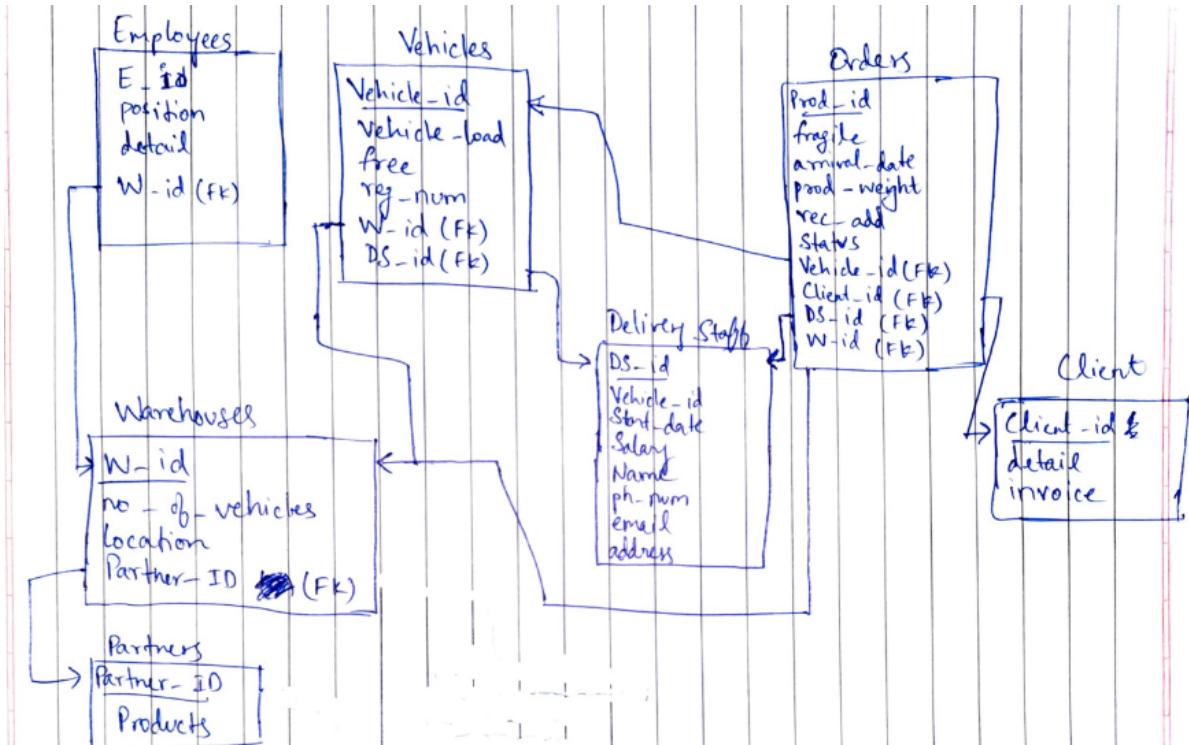 Employees
E_id
position
detail
W-id (FK)
Vehicles
Vehicle-id
Vehicle-load
free
reg-num
W-id (FK)
DS-id (FK)
Orders
Prod-id
fragile
arrival-date
prod-weight
rec-add
Status
Vehicle-id (FK)
Client-id (FK)
DS-id (FK)
W-id (FK)
Delivery Staff
DS-id
Vehicle-id
Start-date
Salary
Name
ph-num
email
address
Client
Client-id
detail
invoice
Warehouses
W-id
no-of-vehicles
location
Partner-ID (FK)
Partners
Partner-ID
Products